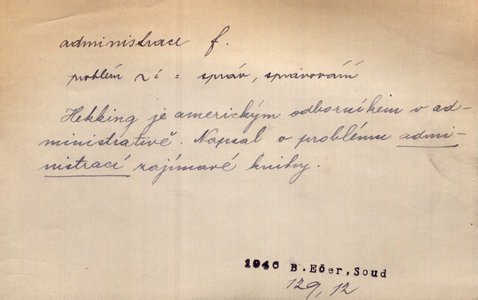 administrace f.
problém z í = správ, spravování
Hekking je americkým odborníkem v ad-
ministrativě. Napsal o problému admi-
nistrací zajímavé knihy.
1946 B. Ečer, Soud
129, 12